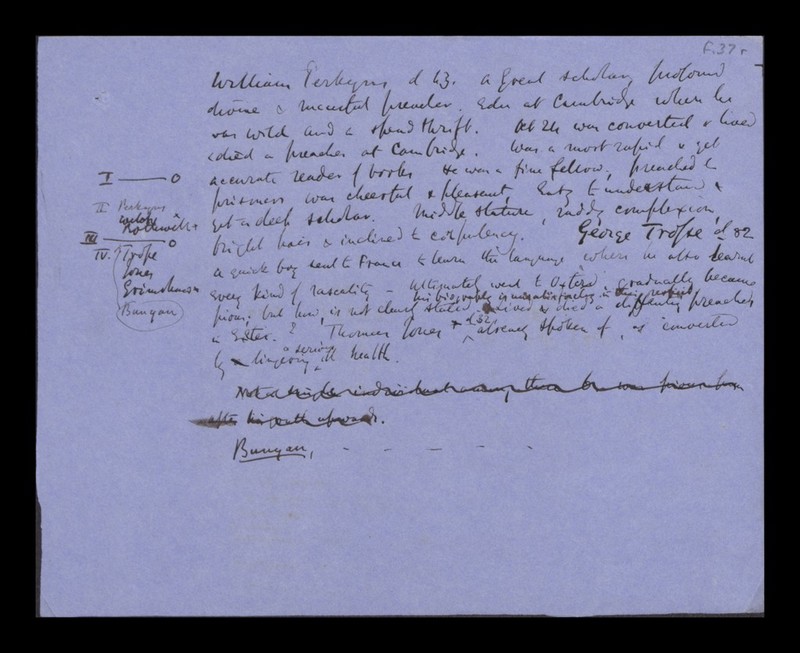 f.37 r
William Perkyns, d 43. a great scholar, profound
divine & preacher. Educ at Cambridge where he
was wild and a spendthrift. At 24 was converted & lived
& died a preacher at Cambridge. Was a most rapid & yet
I — 0
accurate reader of books He was a fine fellow, preached to
II Perkyns
prisoners was cheerful & pleasant, Easy to understand &
Rothwell
yet a deep scholar. Middle stature, ruddy complexion,
III — 0
bright hair & inclined to corpulency. George Trosse d 82
IV. Trosse
Jones
Grimshawe
Bunyan
a quick boy sent to France to learn the language where he also learnt
every kind of rascality – Ultimately went to Oxford gradually became
his biography is in
pious; but how, is not clearly stated. lived & died a preacher
in Exeter. ? Thomas Jones d 52 already spoken of, is converted
by a serious lingering ill health.
Not a single individual
after his youth upwards.
Bunyan, - - - - -